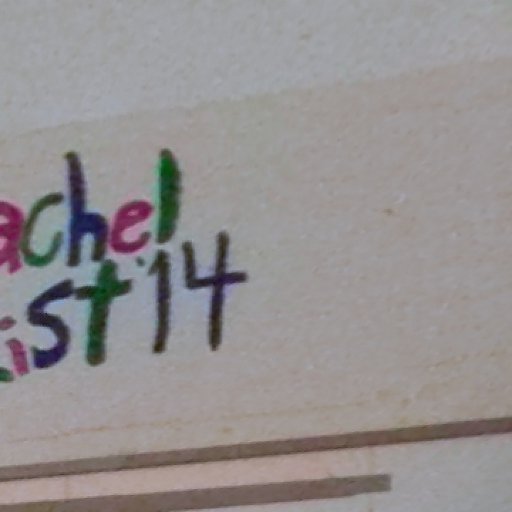 achel
ist '14